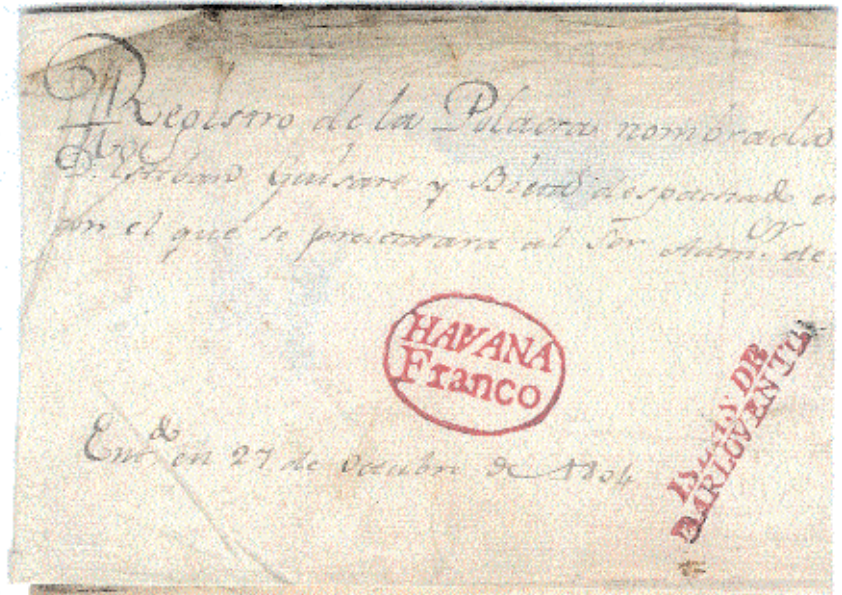 Registro de la Polacra nombrada
Esteban y despachad
con el que se presentara al Sor Admor. de
HAVANA
Franco
ISLAS DE
BARLOVENTO
Entdo en 27 de Octubre de 1804